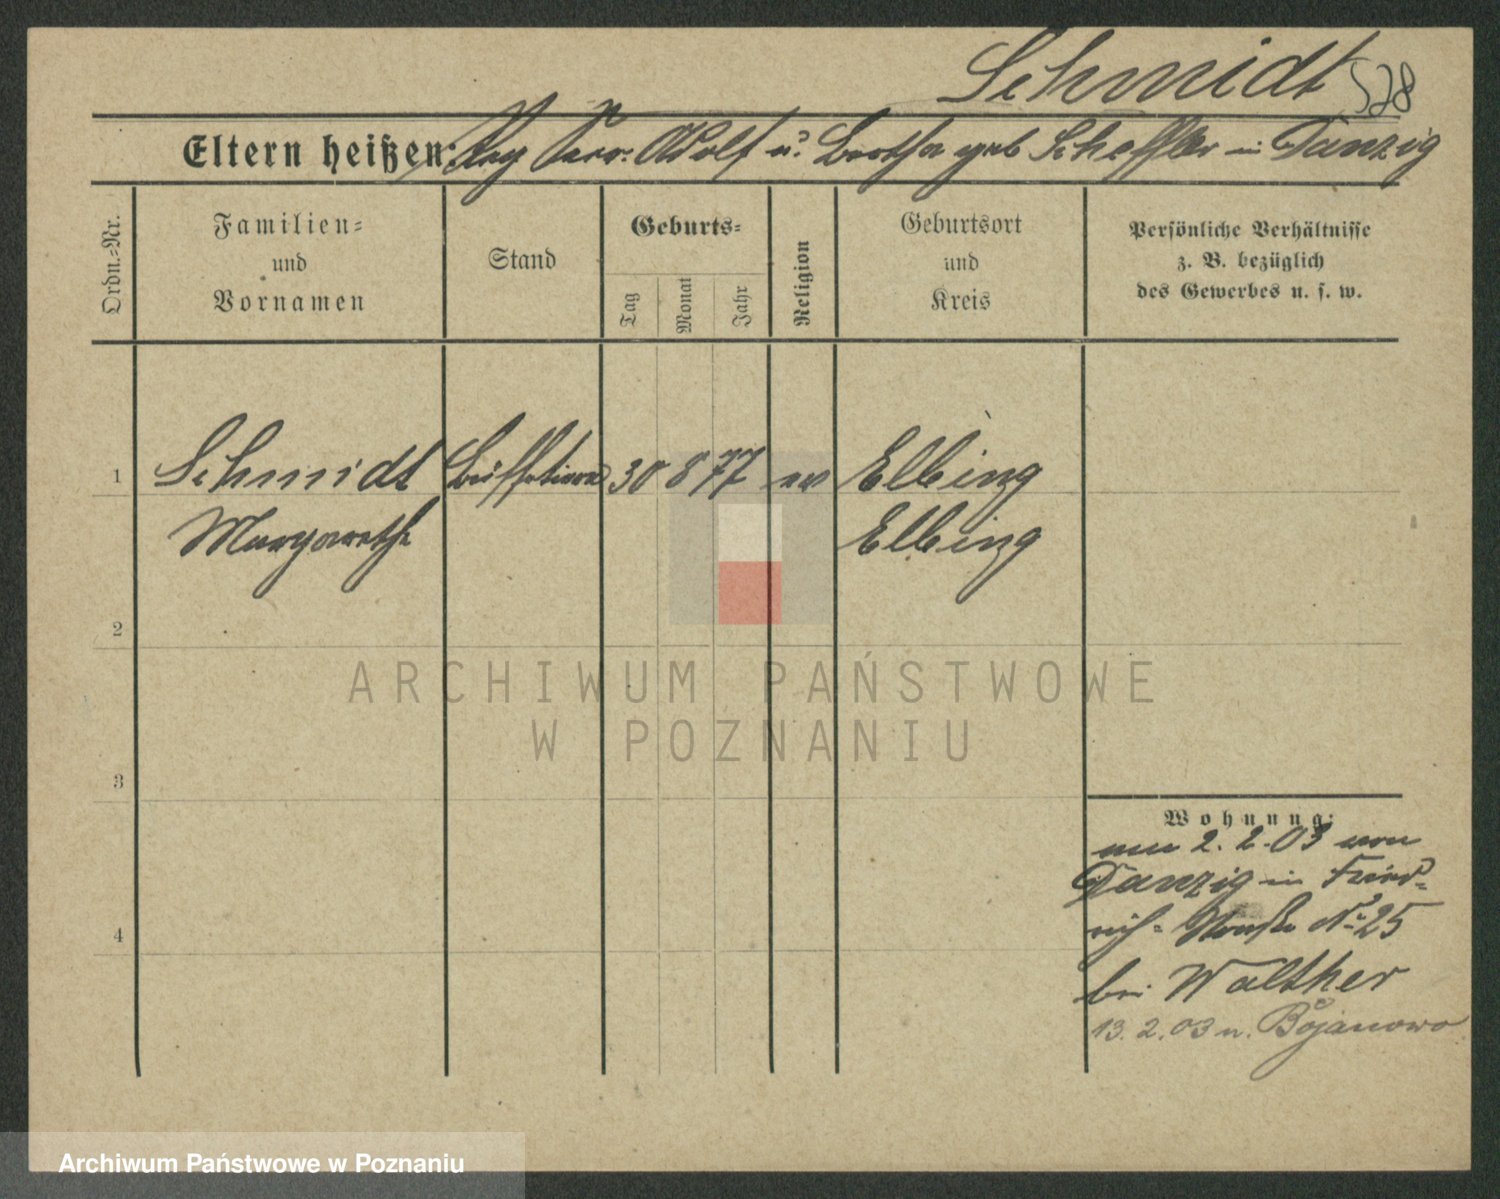 Schmidt 528
Eltern heißen: Adolf u. Bertha geb Scheffler in Danzig
Ordn.=Nr.
Familien=
und
Vornamen
Stand
Geburts=
Tag
Monat
Jahr
Religion
Geburtsort
und
Kreis
Persönliche Verhältnisse
z. B. bezüglich
des Gewerbes u. s. w.
1 Schmidt 30 8 77 ev Elbing
Margarethe Elbing
2
3
4
Wohnung:
2. 2. 03 von
Danzig in Fried=
rich= Straße No 25
bei Walther
13. 2. 03 n. Bojanowo
ARCHIWUM PAŃSTWOWE
W POZNANIU
Archiwum Państwowe w Poznaniu